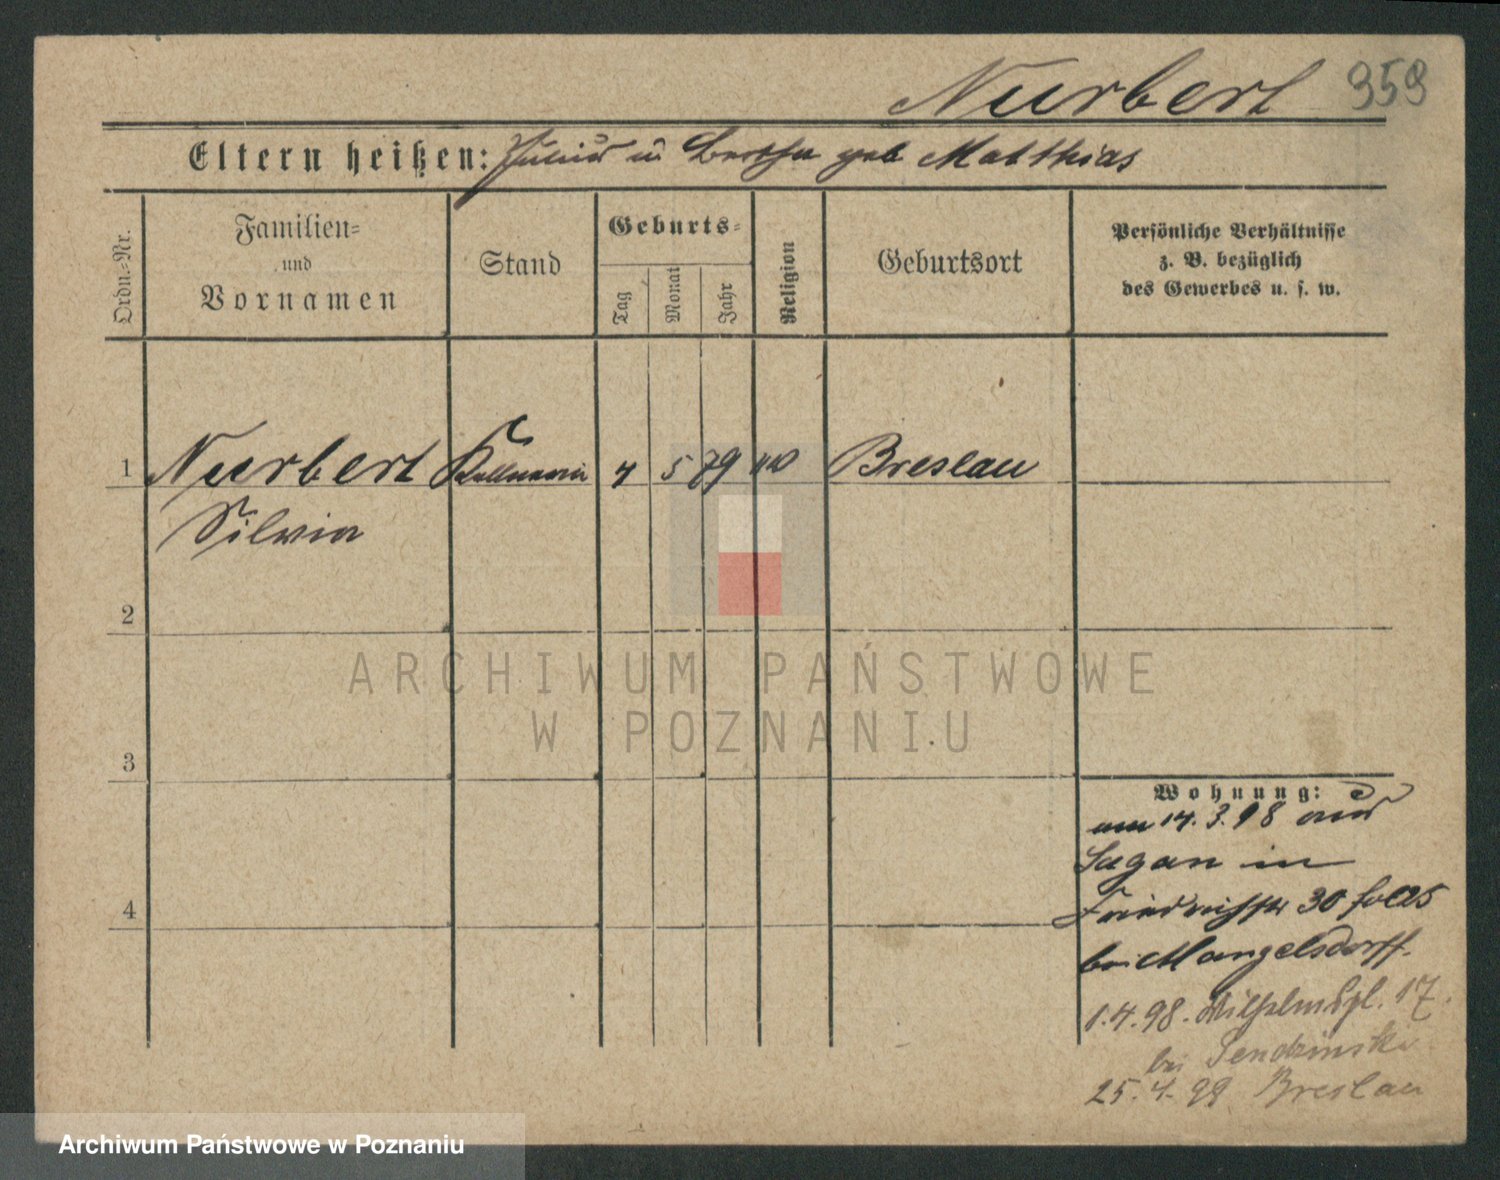 Nurbert 359
Eltern heißen: Julius u Bertha geb Matthias
Ordn.-Nr.
Familien-
und
Vornamen
Stand
Geburts-
Tag
Monat
Jahr
Religion
Geburtsort
Persönliche Verhältnisse
z. B. bezüglich
des Gewerbes u. s. w.
1 Nurbert 4 5 79 Breslau
Silvia
2
3
4
Wohnung:
am 14. 3. 98 aus
Sagan in
30
bei Mangelsdorff.
1.4.98. Wilhelmspl. 17.
bei Sendzinski
25.4.99 Breslau
ARCHIWUM PAŃSTWOWE
W POZNANIU
Archiwum Państwowe w Poznaniu